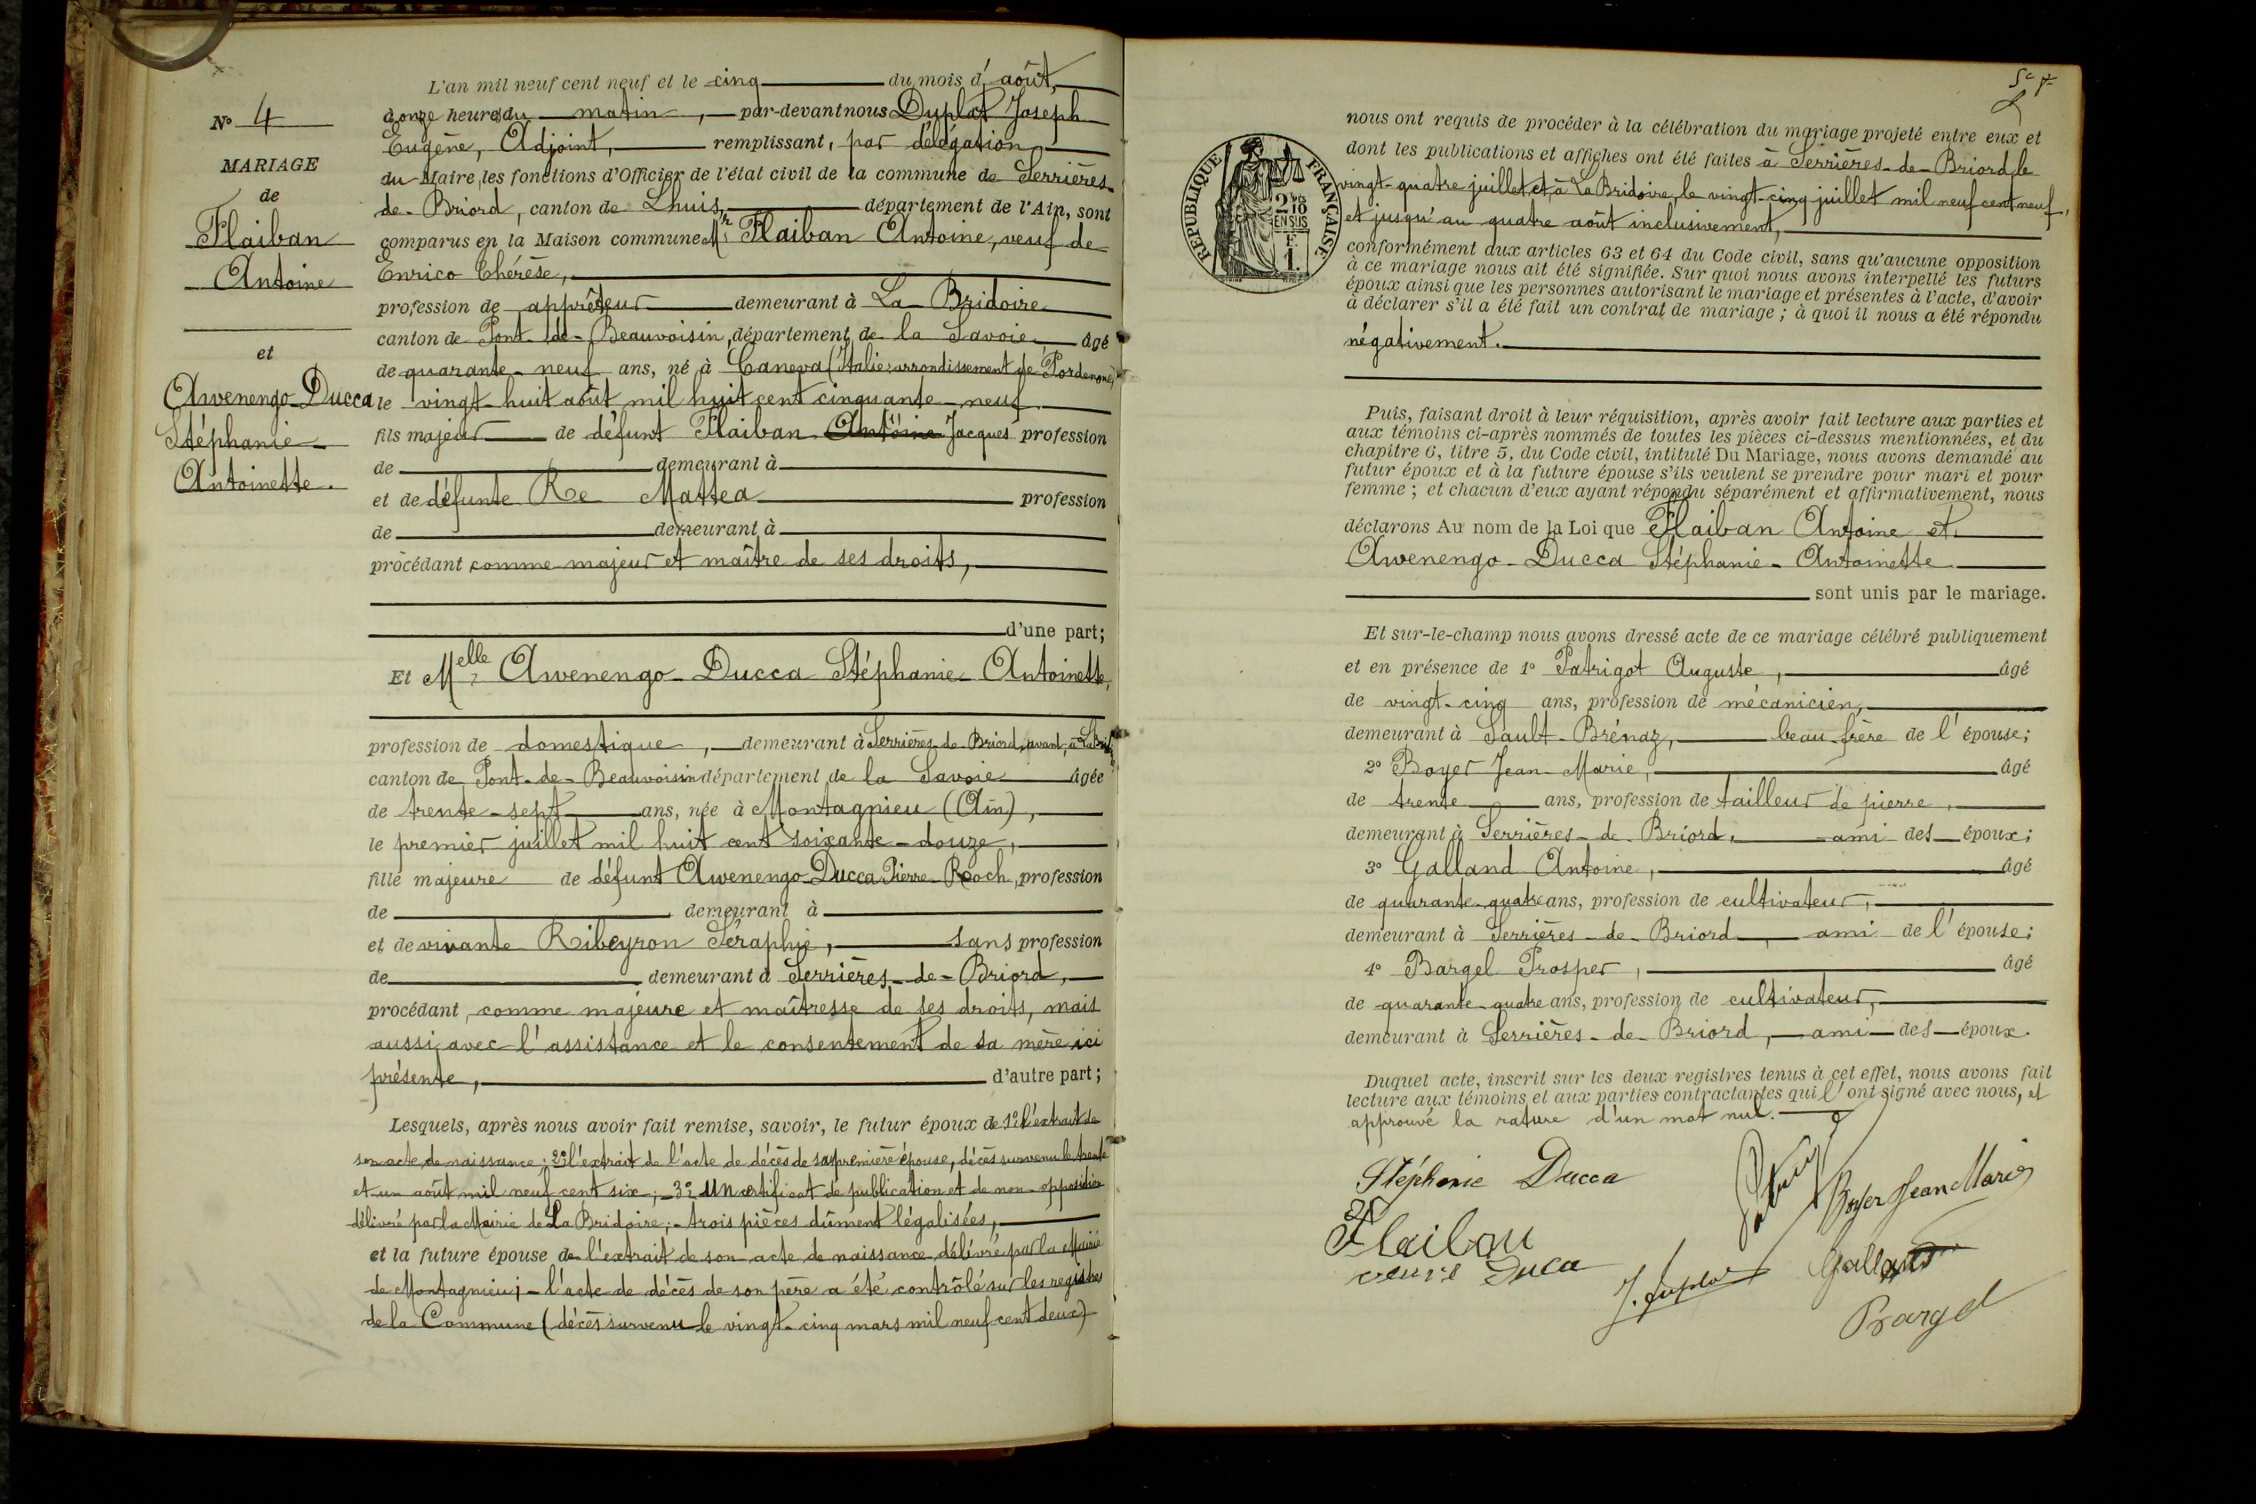 N° 4
MARIAGE
de
Flaiban
Antoine
et
Awenengo-Ducca
Stéphanie-
Antoinette.
L'an mil neuf cent neuf et le cinq du mois d'août,
à onze heures du matin, par-devant nous Duplat Joseph
Eugène, Adjoint, remplissant, par délégation
du Maire, les fonctions d'Officier de l'état civil de la commune de Serrières-
de-Briord, canton de Lhuis, département de l'Ain, sont
comparus en la Maison commune Mr Flaiban Antoine, veuf de
Enrico Thérèse,
profession de apprêteur demeurant à La Bridoire
canton de Pont-de-Beauvoisin, département de la Savoie âgé
de quarante-neuf ans, né à Caneva (Italie: arrondissement de Pordenone),
le vingt-huit août mil huit cent cinquante-neuf
fils majeur de défunt Flaiban Antoine Jacques profession
de demeurant à
et de défunte Re Mattea profession
de demeurant à
procédant comme majeur et maître de ses droits,
d'une part;
Et Melle Awenengo-Ducca Stéphanie-Antoinette,
profession de domestique, demeurant à Serrières-de-Briord, avant, à
canton de Pont-de-Beauvoisin département de la Savoie âgée
de trente-sept ans, née à Montagnieu (Ain),
le premier juillet mil huit cent soixante-douze,
fille majeure de défunt Awenengo-Ducca Pierre-Roch, profession
de demeurant à
et de vivante Ribeyron Séraphie, sans profession
de demeurant à Serrières-de-Briord,
procédant comme majeure et maîtresse de ses droits, mais
aussi avec l'assistance et le consentement de sa mère ici
présente, d'autre part;
Lesquels, après nous avoir fait remise, savoir, le futur époux de 1° l'extrait de
son acte de naissance; 2° l'extrait de l'acte de décès de sa première épouse, décès survenu le trente
et un août mil neuf cent six; -3° un certificat de publication et de non-opposition
délivré par la Mairie de La Bridoire; -trois pièces dûment légalisées,
et la future épouse de l'extrait de son acte de naissance délivré par la Mairie
de Montagnieu; -l'acte de décès de son père a été contrôlé sur les registres
de la Commune (décès survenu le vingt-cinq mars mil neuf cent deux)
RÉPUBLIQUE FRANÇAISE
2 10
EN SUS
F.
1.
nous ont requis de procéder à la célébration du mariage projeté entre eux et
dont les publications et affiches ont été faites à Serrières-de-Briord le
vingt-quatre juillet, et à La Bridoire, le vingt-cinq juillet mil neuf cent neuf,
et jusqu'au quatre août inclusivement,
conformément aux articles 63 et 64 du Code civil, sans qu'aucune opposition
à ce mariage nous ait été signifiée. Sur quoi nous avons interpellé les futurs
époux ainsi que les personnes autorisant le mariage et présentes à l'acte, d'avoir
à déclarer s'il a été fait un contrat de mariage; à quoi il nous a été répondu
négativement.
Puis, faisant droit à leur réquisition, après avoir fait lecture aux parties et
aux témoins ci-après nommés de toutes les pièces ci-dessus mentionnées, et du
chapitre 6, titre 5, du Code civil, intitulé Du Mariage, nous avons demandé au
futur époux et à la future épouse s'ils veulent se prendre pour mari et pour
femme; et chacun d'eux ayant répondu séparément et affirmativement, nous
déclarons Au nom de la Loi que Flaiban Antoine et
Awenengo-Ducca Stéphanie-Antoinette
sont unis par le mariage.
Et sur-le-champ nous avons dressé acte de ce mariage célébré publiquement
et en présence de 1° Patrigot Auguste, âgé
de vingt-cinq ans, profession de mécanicien,
demeurant à Sault-Brénaz, beau-frère de l'épouse;
2° Boyer Jean-Marie, âgé
de trente ans, profession de tailleur de pierre,
demeurant à Serrières-de-Briord, ami des époux;
3° Galland Antoine, âgé
de quarante-quatre ans, profession de cultivateur,
demeurant à Serrières-de-Briord, ami de l'épouse;
4° Bargel Prosper, âgé
de quarante-quatre ans, profession de cultivateur,
demeurant à Serrières-de-Briord, ami des époux.
Duquel acte, inscrit sur les deux registres tenus à cet effet, nous avons fait
lecture aux témoins et aux parties contractantes qui l'ont signé avec nous, et
approuvé la rature d'un mot nul.
Stéphanie Ducca
Boyer Jean Marie
Flaiban
veuve Duca
J. Duplat
Galland
Bargel